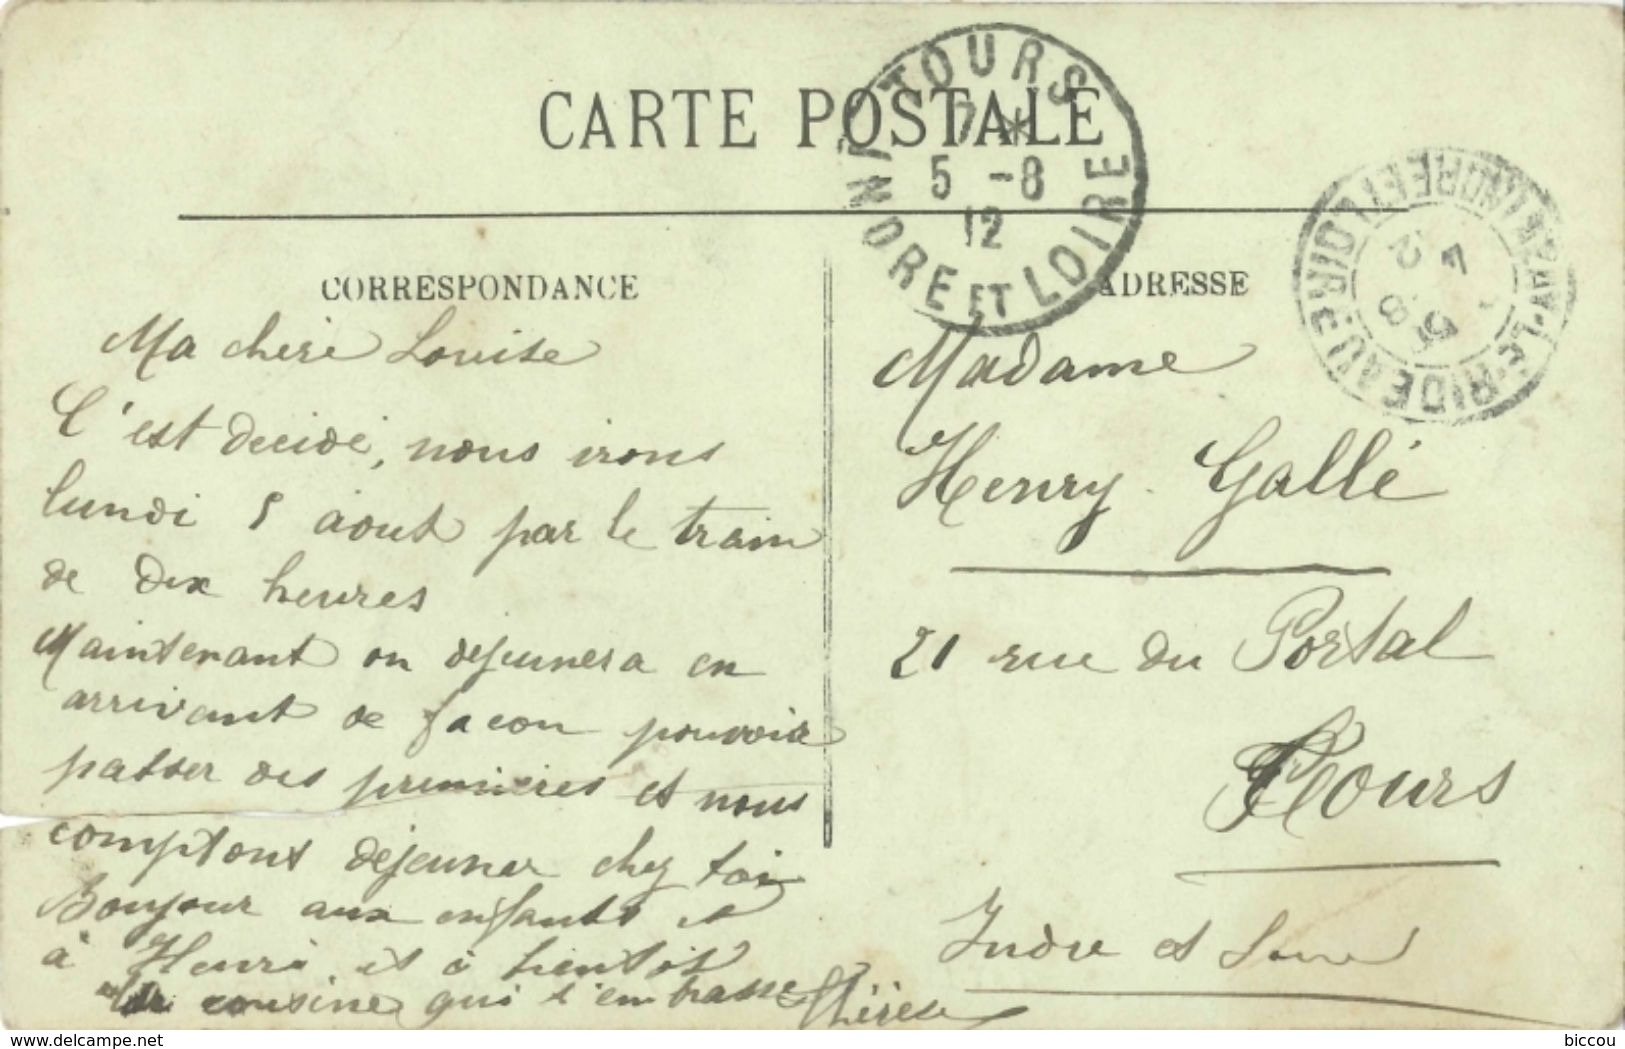 CARTE POSTALE
TOURS
7 *
5 -8
12
INDRE ET LOIRE
AZAY-LE-RIDEAU INDRE ET LOIRE
CORRESPONDANCE
Ma chere Louise
C'est decidé, nous irons
lundi 5 août par le train
de dix heures
Maintenant on dejeunera en
arrivant de facon pouvoir
passer des premieres et nous
comptons dejeuner chez toi
Bonjour aux enfants et
à Henri. et à bientôt
ta cousine qui t'embrasse Thérèse
ADRESSE
Madame
Henry Gallé
21 rue du Portal
Tours
Indre et Loire
delcampe.net
biccou